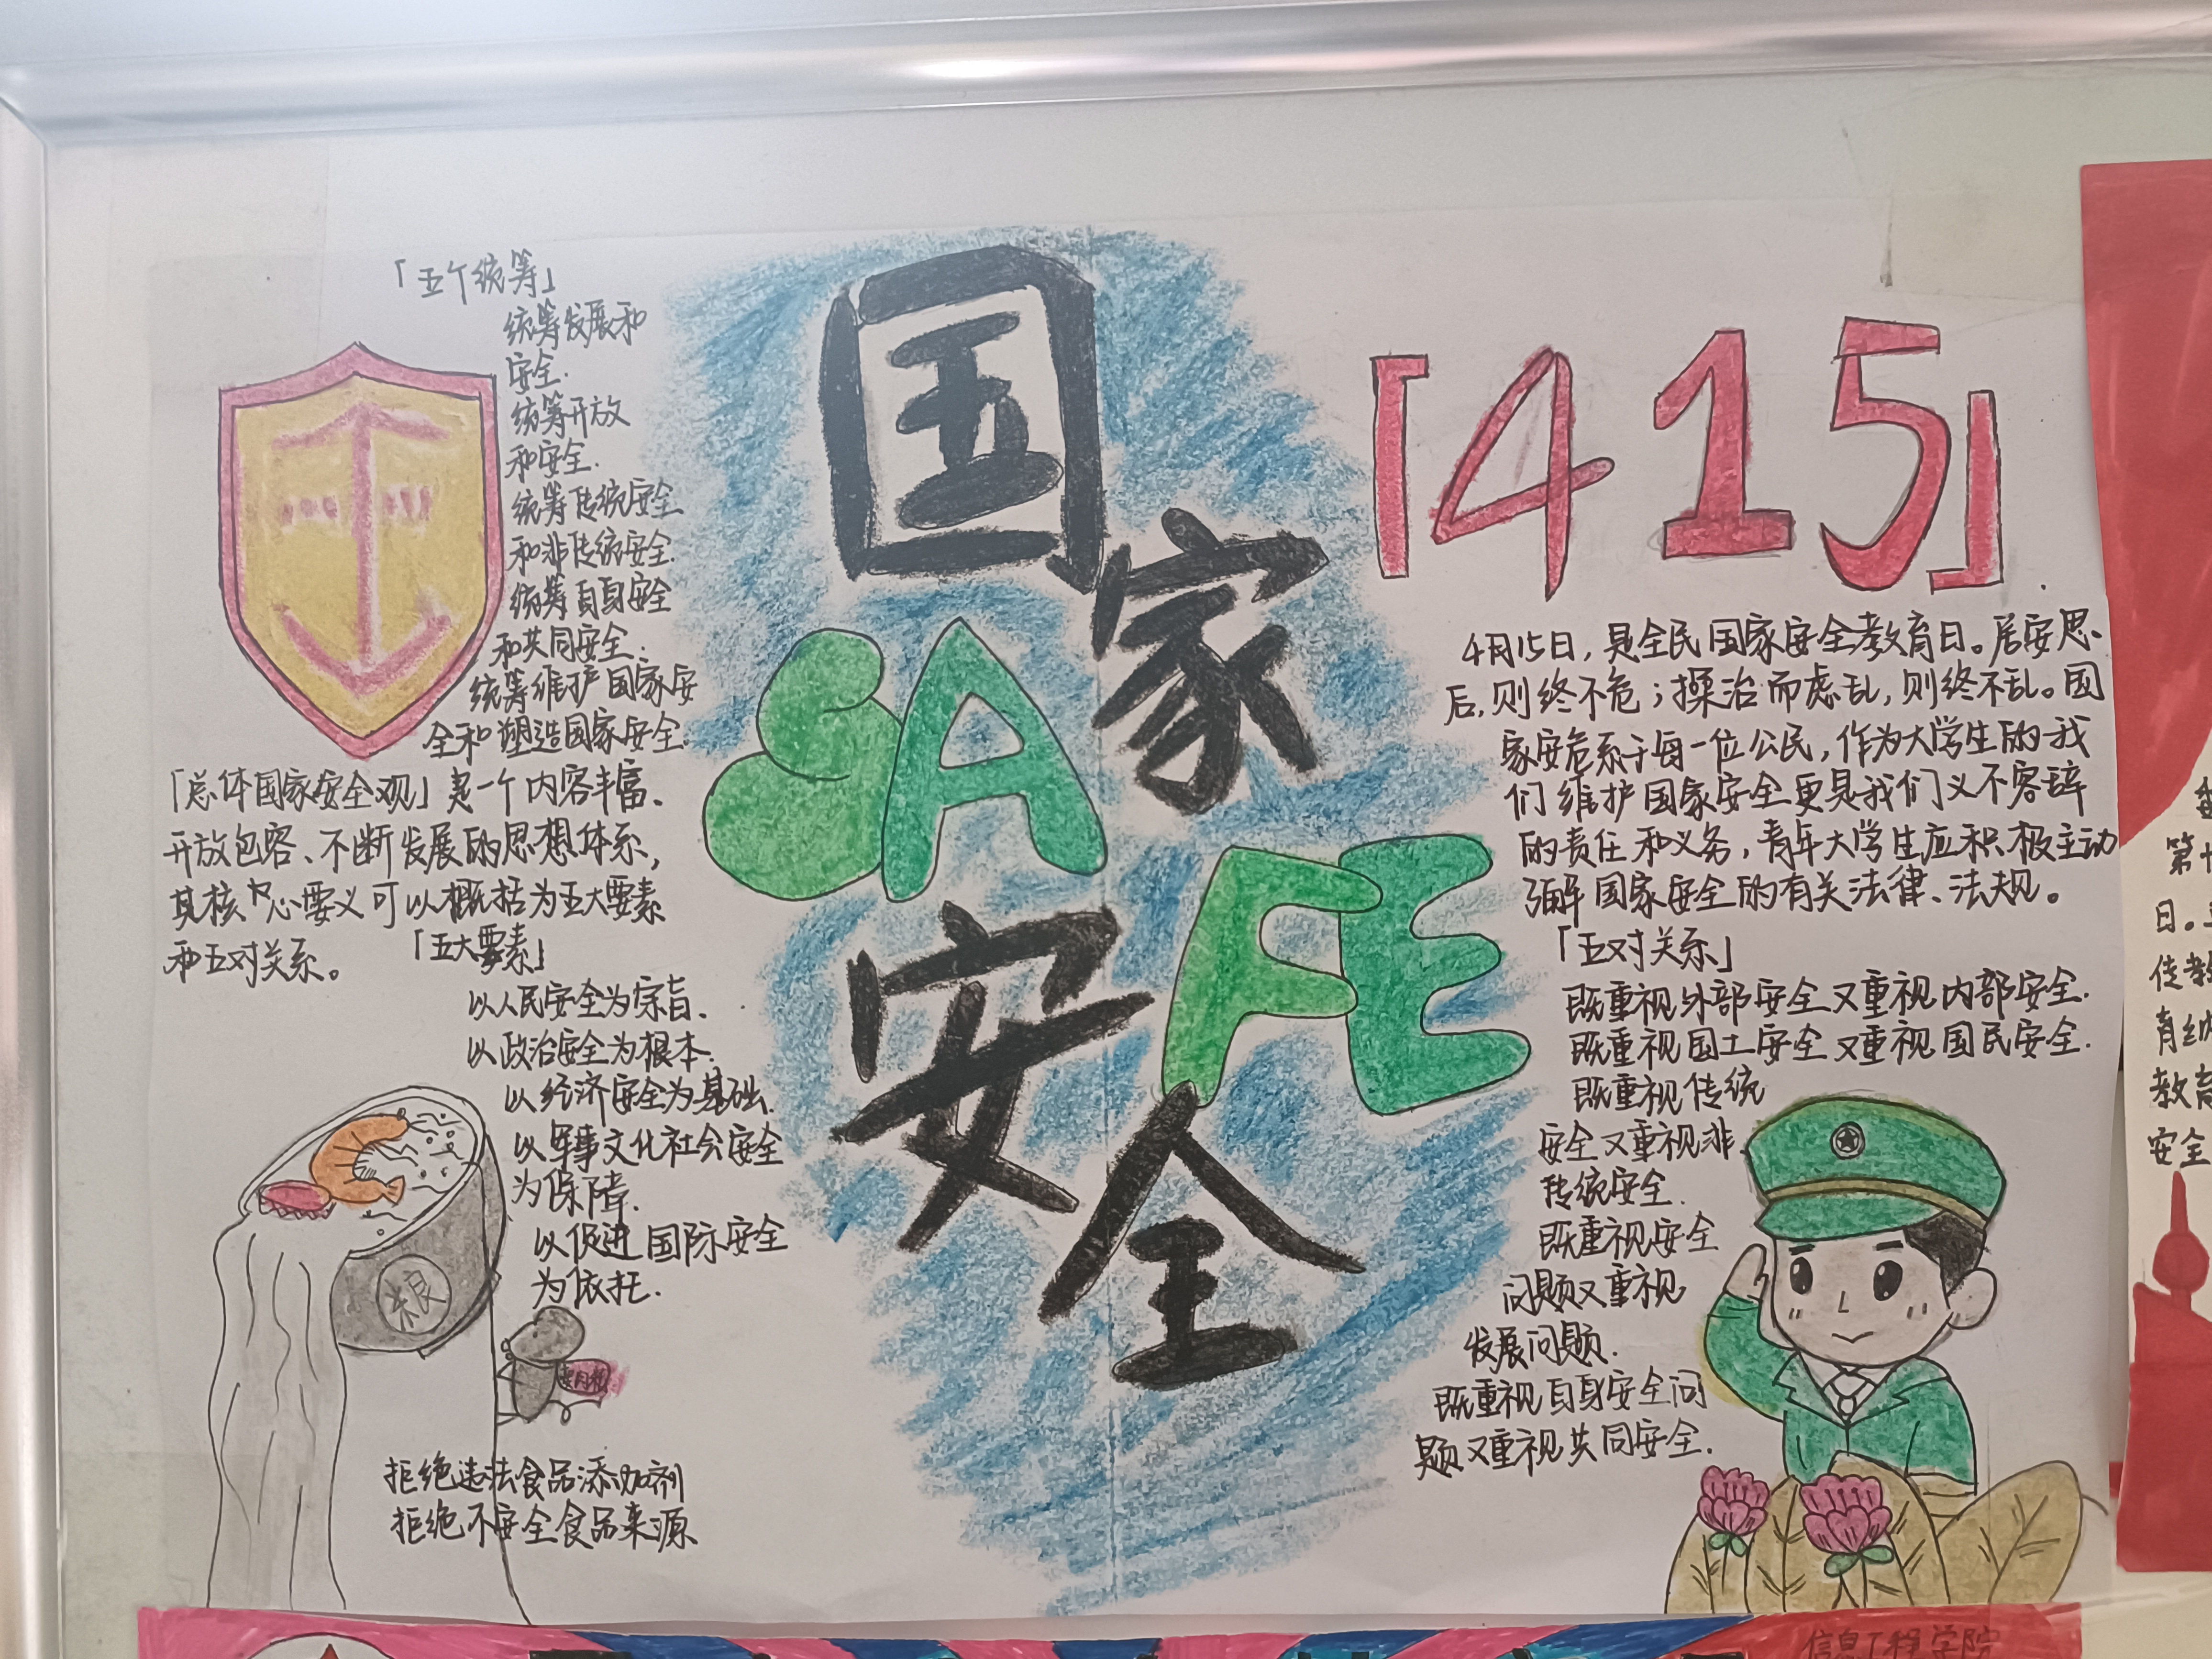 「五个统筹」
统筹发展和
安全.
统筹开放
和安全.
统筹传统安全
和非传统安全.
统筹自身安全
和共同安全.
统筹维护国家安
全和塑造国家安全.
「总体国家安全观」是一个内容丰富、
开放包容、不断发展的思想体系,
其核心要义可以概括为五大要素
和五对关系。
「五大要素」
以人民安全为宗旨.
以政治安全为根本.
以经济安全为基础.
以军事文化社会安全
为保障.
以促进国际安全
为依托.
粮
拒绝违法食品添加剂
拒绝不安全食品来源
国
家
SAFE
安
全
「415」
4月15日,是全民国家安全教育日。居安思
后,则终不危;操治而虑乱,则终不乱。国
家安危系于每一位公民,作为大学生的我
们维护国家安全更是我们义不容辞
的责任和义务,青年大学生应积极主动
了解国家安全的有关法律、法规。
「五对关系」
既重视外部安全又重视内部安全.
既重视国土安全又重视国民安全.
既重视传统
安全又重视非
传统安全.
既重视安全
问题又重视
发展问题.
既重视自身安全问
题又重视共同安全.
第十
日。
传教
育纳
教育
安全
信息工程学院